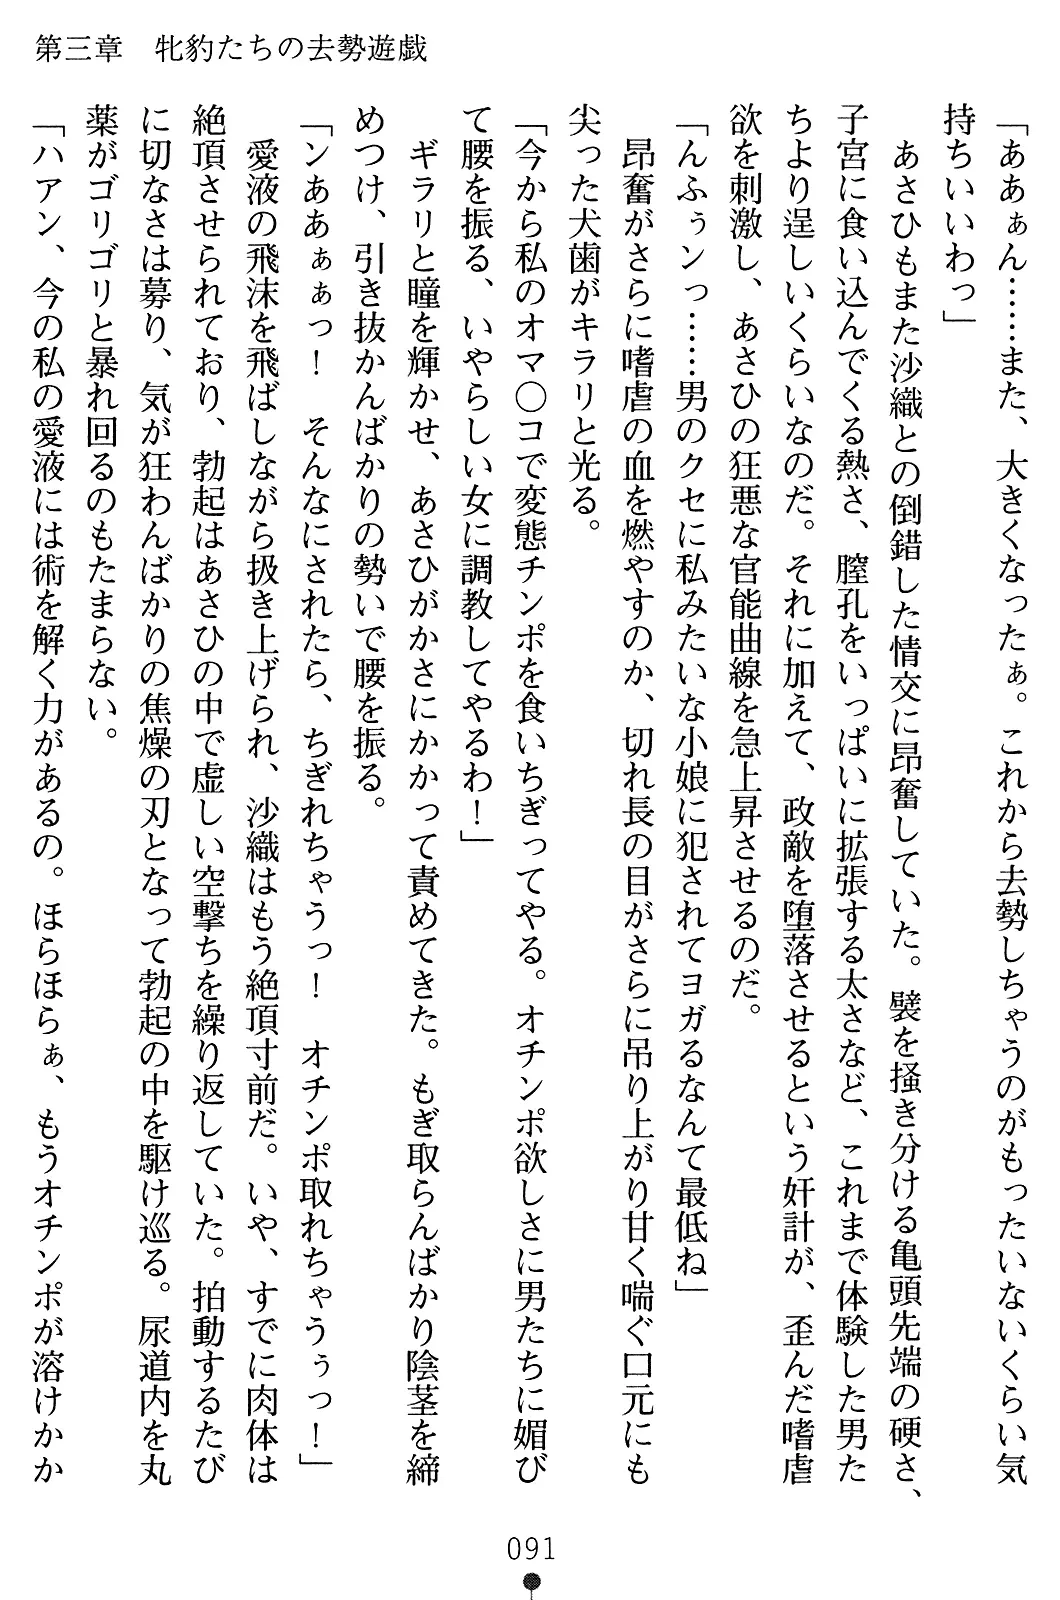 第三章　牝豹たちの去勢遊戯
「ああぁん……また、大きくなったぁ。これから去勢しちゃうのがもったいないくらい気
持ちいいわっ」
　あさひもまた沙織との倒錯した情交に昂奮していた。襞を掻き分ける亀頭先端の硬さ、
子宮に食い込んでくる熱さ、膣孔をいっぱいに拡張する太さなど、これまで体験した男た
ちより逞しいくらいなのだ。それに加えて、政敵を堕落させるという奸計が、歪んだ嗜虐
欲を刺激し、あさひの狂悪な官能曲線を急上昇させるのだ。
「んふぅンっ……男のクセに私みたいな小娘に犯されてヨガるなんて最低ね」
　昂奮がさらに嗜虐の血を燃やすのか、切れ長の目がさらに吊り上がり甘く喘ぐ口元にも
尖った犬歯がキラリと光る。
「今から私のオマ〇コで変態チンポを食いちぎってやる。オチンポ欲しさに男たちに媚び
て腰を振る、いやらしい女に調教してやるわ！」
　ギラリと瞳を輝かせ、あさひがかさにかかって責めてきた。もぎ取らんばかり陰茎を締
めつけ、引き抜かんばかりの勢いで腰を振る。
「ンああぁぁっ！　そんなにされたら、ちぎれちゃうっ！　オチンポ取れちゃうぅっ！」
　愛液の飛沫を飛ばしながら扱き上げられ、沙織はもう絶頂寸前だ。いや、すでに肉体は
絶頂させられており、勃起はあさひの中で虚しい空撃ちを繰り返していた。拍動するたび
に切なさは募り、気が狂わんばかりの焦燥の刃となって勃起の中を駆け巡る。尿道内を丸
薬がゴリゴリと暴れ回るのもたまらない。
「ハアン、今の私の愛液には術を解く力があるの。ほらほらぁ、もうオチンポが溶けかか
091